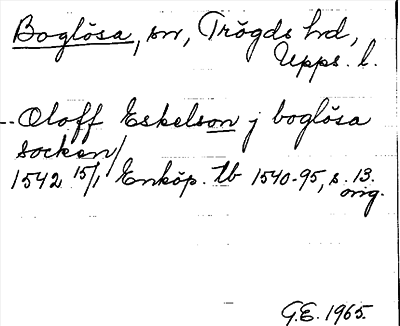 Boglösa, sn, Trögds hd,
Upps. l.
-- Oloff Eskelson j boglösa
socken/
1542 15/1 Enköp. tb 1540-95, s. 13.
orig.
G.E. 1965.